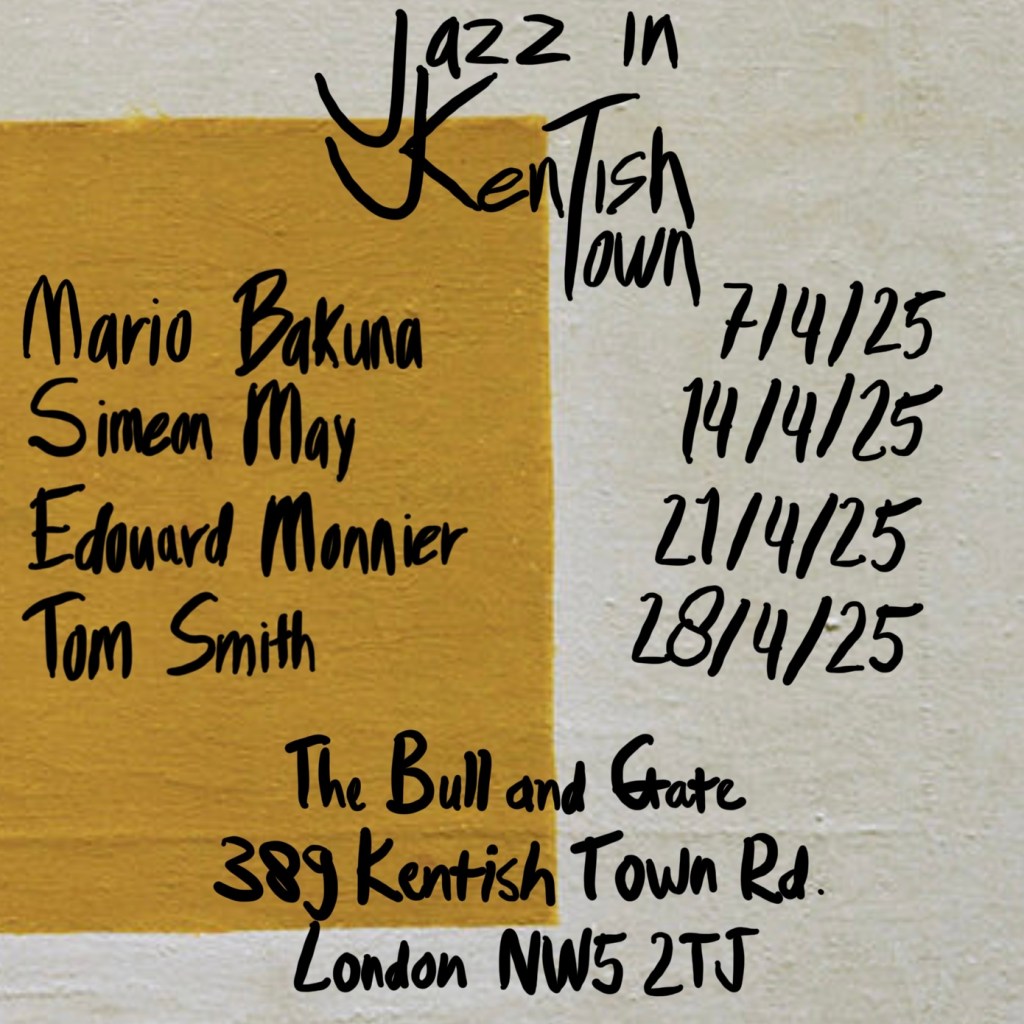 Jazz in
Kentish
Town
Mario Bakuna 7/4/25
Simeon May 14/4/25
Edouard Monnier 21/4/25
Tom Smith 28/4/25
The Bull and Gate
389 Kentish Town Rd.
London NW5 2TJ